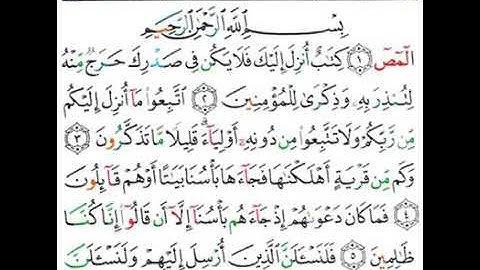 بِسْمِ ٱللَّهِ ٱلرَّحْمَٰنِ ٱلرَّحِيمِ
الٓمٓصٓ ١ كِتَٰبٌ أُنزِلَ إِلَيْكَ فَلَا يَكُن فِى صَدْرِكَ حَرَجٌ مِّنْهُ
لِتُنذِرَ بِهِۦ وَذِكْرَىٰ لِلْمُؤْمِنِينَ ٢ ٱتَّبِعُوا۟ مَآ أُنزِلَ إِلَيْكُم
مِّن رَّبِّكُمْ وَلَا تَتَّبِعُوا۟ مِن دُونِهِۦٓ أَوْلِيَآءَ ۗ قَلِيلًا مَّا تَذَكَّرُونَ ٣
وَكَم مِّن قَرْيَةٍ أَهْلَكْنَٰهَا فَجَآءَهَا بَأْسُنَا بَيَٰتًا أَوْ هُمْ قَآئِلُونَ
٤ فَمَا كَانَ دَعْوَىٰهُمْ إِذْ جَآءَهُم بَأْسُنَآ إِلَّآ أَن قَالُوٓا۟ إِنَّا كُنَّا
ظَٰلِمِينَ ٥ فَلَنَسْـَٔلَنَّ ٱلَّذِينَ أُرْسِلَ إِلَيْهِمْ وَلَنَسْـَٔلَنَّ